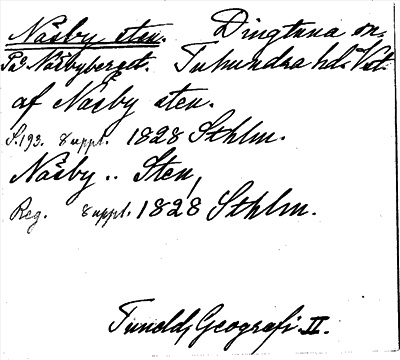 Näsby sten. Dingtuna sn.
På Näsbyberget. Tuhundra hd. Vst.
af Näsby sten.
S. 193. 8 uppl. 1828 Sthlm.
Näsby .. Sten,
Reg. 8 uppl. 1828 Sthlm.
Tuneld, Geografi II.